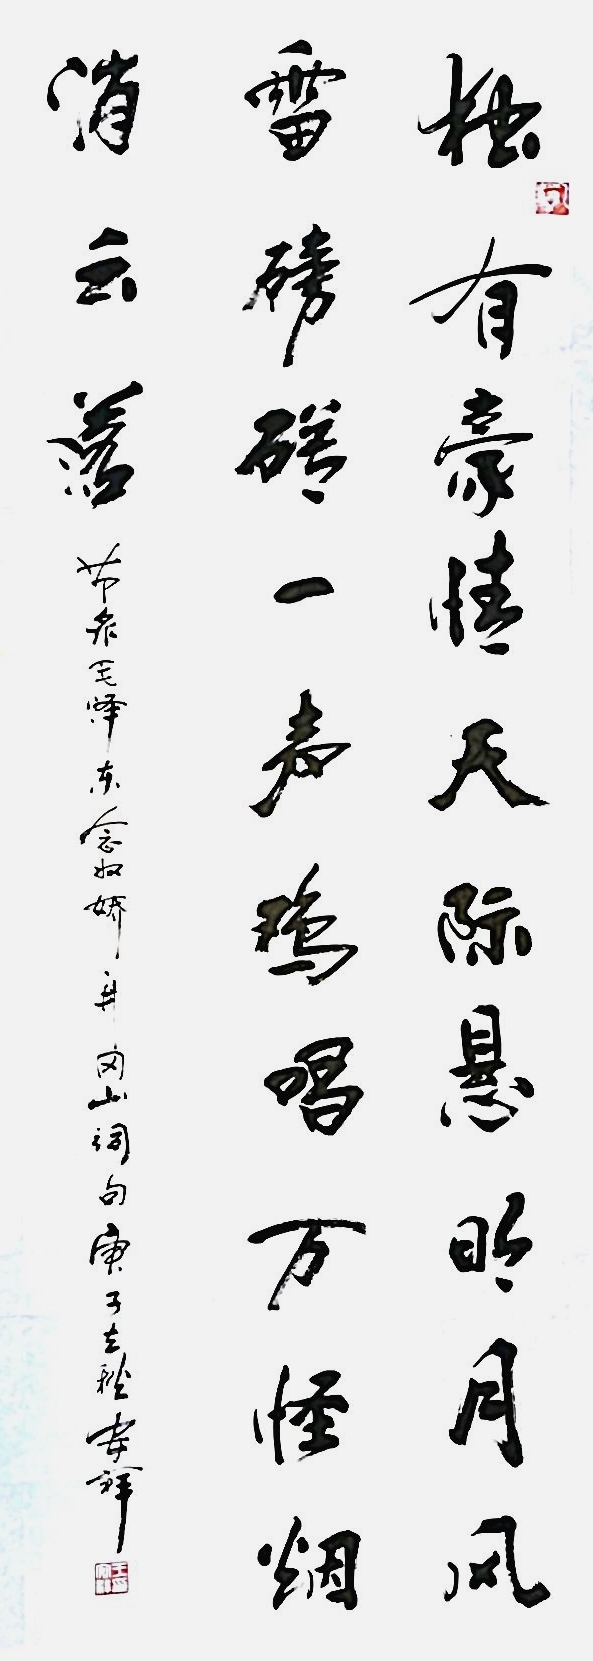 独有豪情天际悬明月风
雷磅礴一声鸡唱万怪烟
消云落
节录毛泽东念奴娇井冈山词句庚子之秋安祥